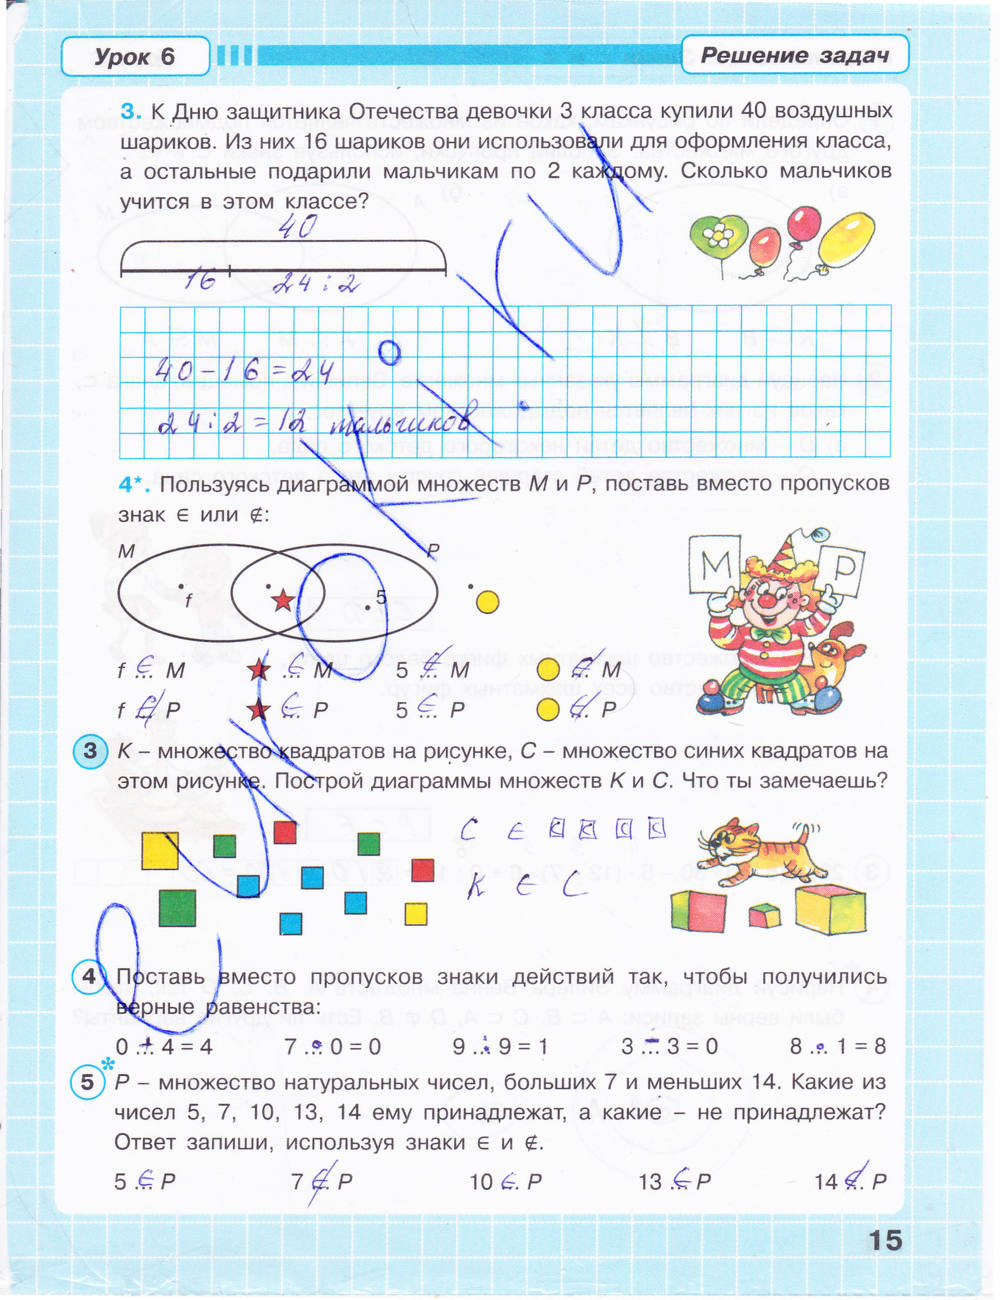 Урок 6
Решение задач
3. К Дню защитника Отечества девочки 3 класса купили 40 воздушных
шариков. Из них 16 шариков они использовали для оформления класса,
а остальные подарили мальчикам по 2 каждому. Сколько мальчиков
учится в этом классе?
40
16 24 : 2
40 - 16 = 24
24 : 2 = 12 мальчиков
4*. Пользуясь диаграммой множеств M и P, поставь вместо пропусков
знак ∈ или ∉:
M P
f 5
M P
f ∈ M ★ ∈ M 5 ∉ M ∉ M
f ∉ P ★ ∈ P 5 ∈ P ∉ P
3 K – множество квадратов на рисунке, C – множество синих квадратов на
этом рисунке. Построй диаграммы множеств K и C. Что ты замечаешь?
C ∈
K ∈ C
4 Поставь вместо пропусков знаки действий так, чтобы получились
верные равенства:
0 + 4 = 4 7 · 0 = 0 9 : 9 = 1 3 - 3 = 0 8 · 1 = 8
5* P – множество натуральных чисел, больших 7 и меньших 14. Какие из
чисел 5, 7, 10, 13, 14 ему принадлежат, а какие – не принадлежат?
Ответ запиши, используя знаки ∈ и ∉.
5 ∈ P 7 ∉ P 10 ∈ P 13 ∈ P 14 ∉ P
15